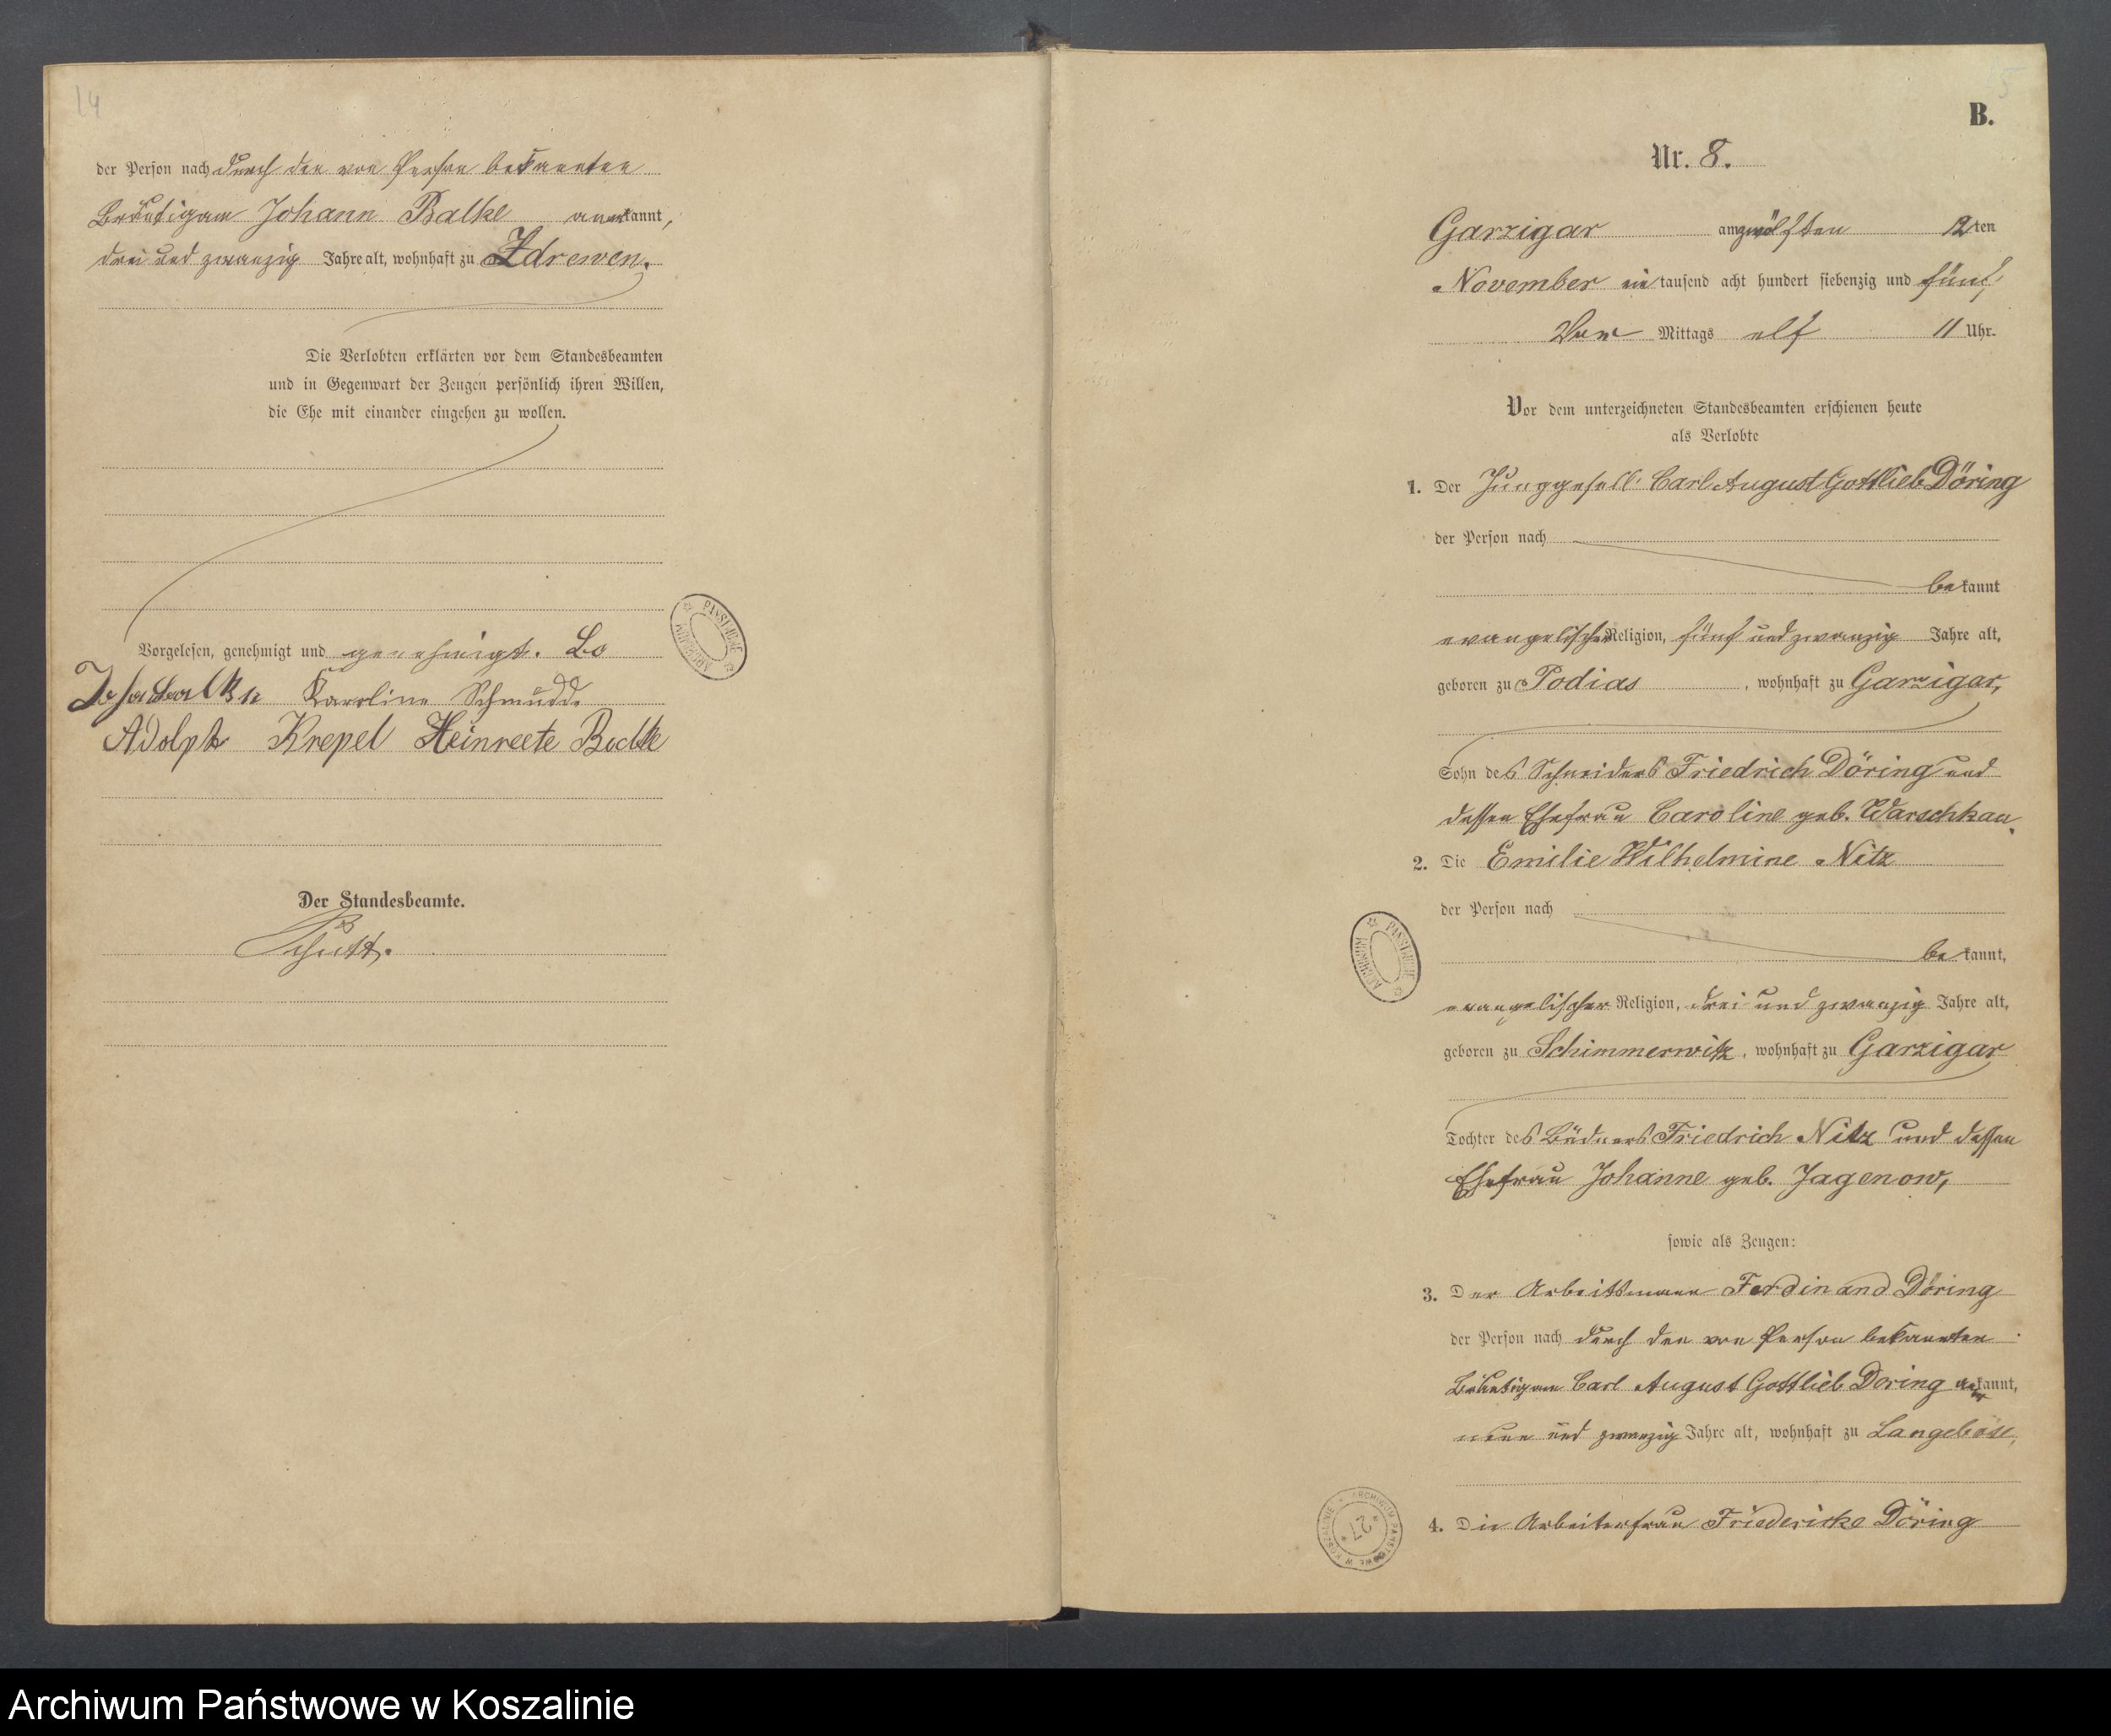 14
der Person nach durch den von Person bekannten
Bräutigam Johann Balke anerkannt,
drei und zwanzig Jahre alt, wohnhaft zu Zdrewen.
Die Verlobten erklärten vor dem Standesbeamten
und in Gegenwart der Zeugen persönlich ihren Willen,
die Ehe mit einander eingehen zu wollen.
Vorgelesen, genehmigt und genehmigt.
Karoline Schmudde
Adolph Krepel Heinreete
Der Standesbeamte.
B.
Nr. 8.
Garzigar am zwölften 12ten
November ein tausend acht hundert siebenzig und fünf,
Vor Mittags elf 11 Uhr.
Vor dem unterzeichneten Standesbeamten erschienen heute
als Verlobte
1. Der Junggesell Carl August Gottlieb Döring
der Person nach
bekannt
evangelischer Religion, fünf und zwanzig Jahre alt,
geboren zu Podias, wohnhaft zu Garzigar,
Sohn des Schneiders Friedrich Döring und
dessen Ehefrau Caroline geb. Warschkau.
2. Die Emilie Wilhelmine Nitz
der Person nach
bekannt,
evangelischer Religion, drei und zwanzig Jahre alt,
geboren zu Schimmerwitz, wohnhaft zu Garzigar
Tochter des Büdners Friedrich Nitz und dessen
Ehefrau Johanne geb. Jagenow,
sowie als Zeugen:
3. Der Arbeitsmann Ferdinand Döring
der Person nach durch den von Person bekannten
Bräutigam Carl August Gottlieb Döring anerkannt,
neun und zwanzig Jahre alt, wohnhaft zu Langeböse,
4. Die Arbeiterfrau Friedericke Döring
ARCHIWUM PAŃSTWOWE W KOSZALINIE
27
Archiwum Państwowe w Koszalinie